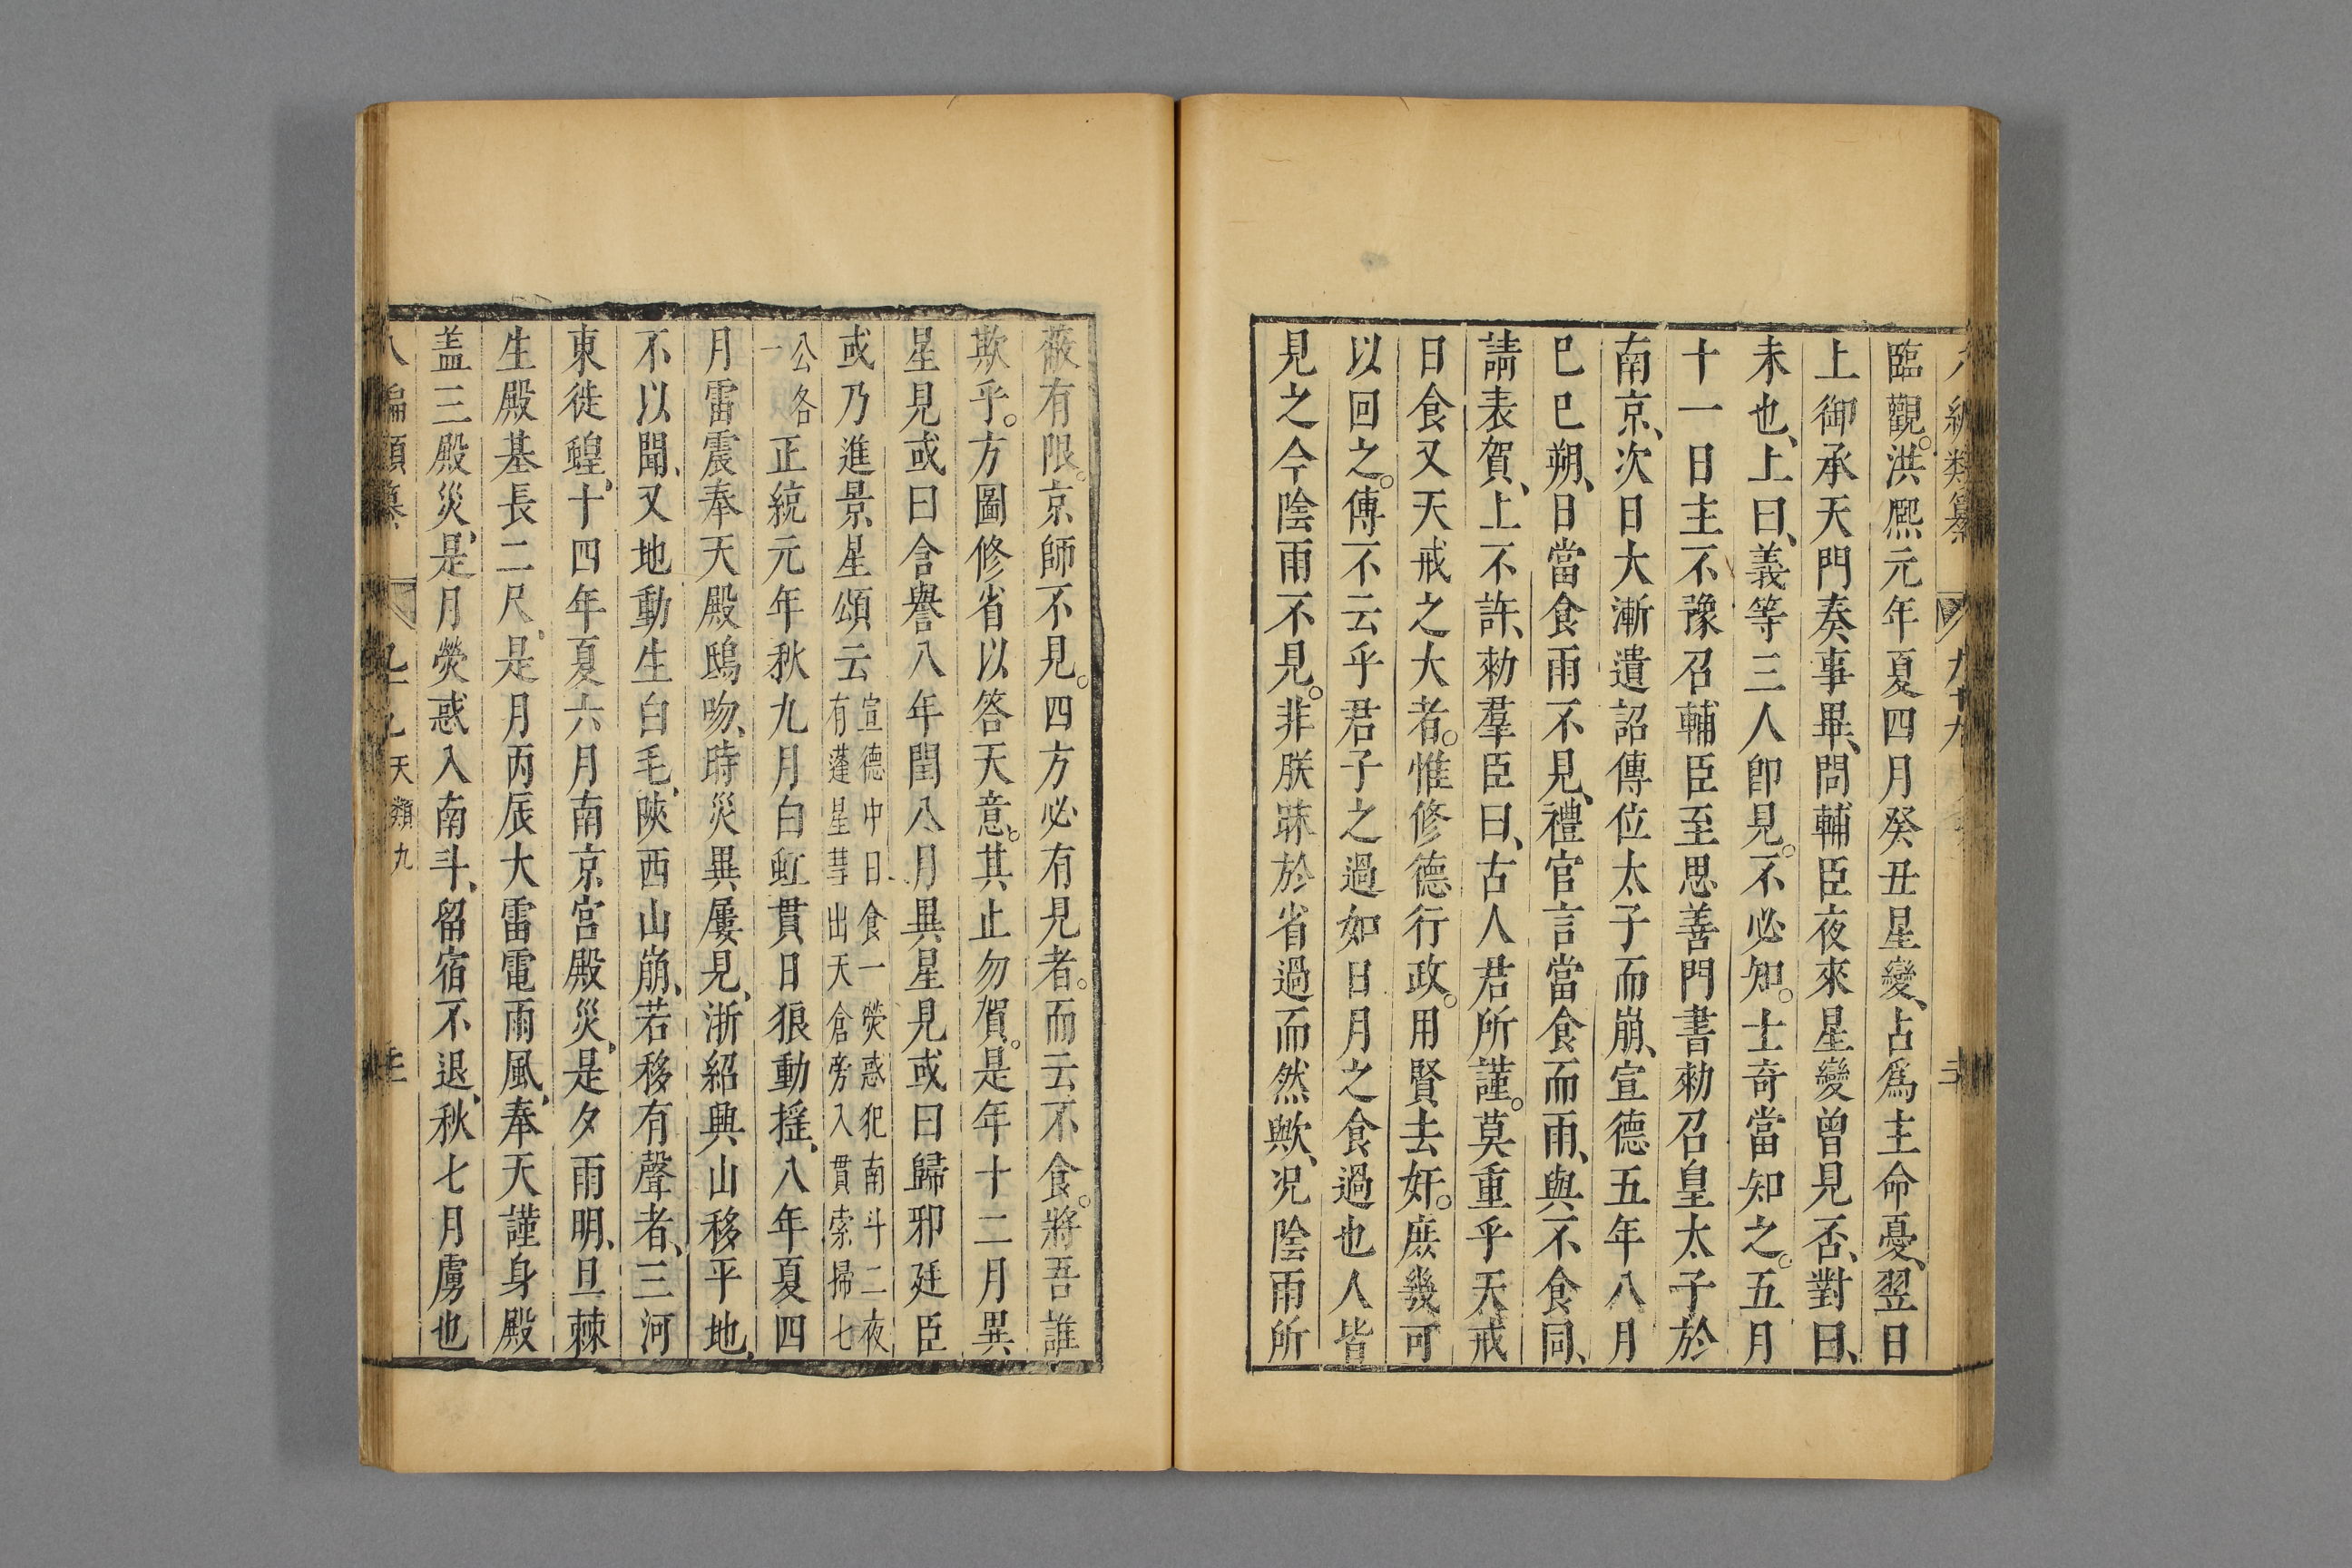 臨觀。洪熈元年夏四月癸丑星變、占爲主命憂、翌日
上御承天門奏事畢、問輔臣夜來星變曾見否、對曰、
未也、上曰、義等三人卽見。不必知。士奇當知之。五月
十一日主不豫召輔臣至思善門書勑召皇太子於
南京、次日大漸遺詔傳位太子而崩、宣德五年八月
巳巳朔、日當食雨不見、禮官言當食而雨、與不食同、
請表賀、上不許、勑羣臣曰、古人君所謹。莫重乎天戒
日食又天戒之大者。惟修德行政。用賢去奸。庶幾可
以回之。傳不云乎君子之過如日月之食過也人皆
見之今陰雨不見。非朕昧於省過而然歟、况陰雨所
蔽有限。京師不見。四方必有見者。而云不食。將吾誰
欺乎。方圖修省以答天意。其止勿賀。是年十二月異
星見或曰含譽八年閏八月異星見或曰歸邪廷臣
或乃進景星頌云宣德中日食一熒惑犯南斗二夜
有蓬星彗出天倉旁入貫索掃七
公各
一
正統元年秋九月白虹貫日狼動搖、八年夏四
月雷震奉天殿鴟吻、時災異屢見、浙紹興山移平地、
不以聞、又地動生白毛、陜西山崩、若移有聲者、三河
東徙蝗、十四年夏六月南京宮殿災、是夕雨明、旦棘
生殿基長二尺、是月丙辰大雷電雨風、奉天謹身殿
盖三殿災、是月熒惑入南斗、留宿不退、秋七月虜也
天類九